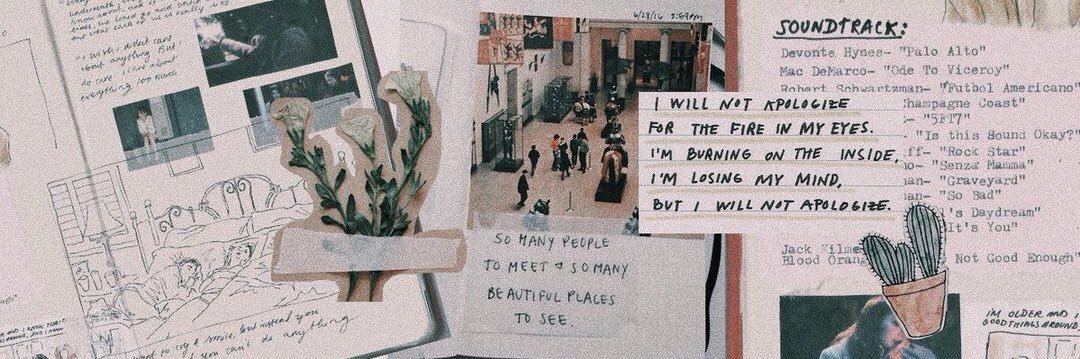 underneath
"I wish I didn't care
about anything. But I
do care. I care about
everything too much
want to cry & smile, but instead you
if you can't do anything
4/28/16 2:59PM
SO MANY PEOPLE
TO MEET & SO MANY
BEAUTIFUL PLACES
TO SEE.
I WILL NOT APOLOGIZE
FOR THE FIRE IN MY EYES.
I'M BURNING ON THE INSIDE,
I'M LOSING MY MIND,
BUT I WILL NOT APOLOGIZE.
SOUNDTRACK:
Devonte Hynes- "Palo Alto"
Mac DeMarco- "Ode To Viceroy"
Robert Schwartzman- "Futbol Americano"
hampagne Coast"
- "5FT7"
"Is this Sound Okay?"
ff- "Rock Star"
- "Senza Mamma"
an- "Graveyard"
an- "So Bad"
's Daydream"
It's You"
Jack Kilme
Not Good Enough"
Blood Orang
I'M OLDER AND I
GOOD THINGS AROUND